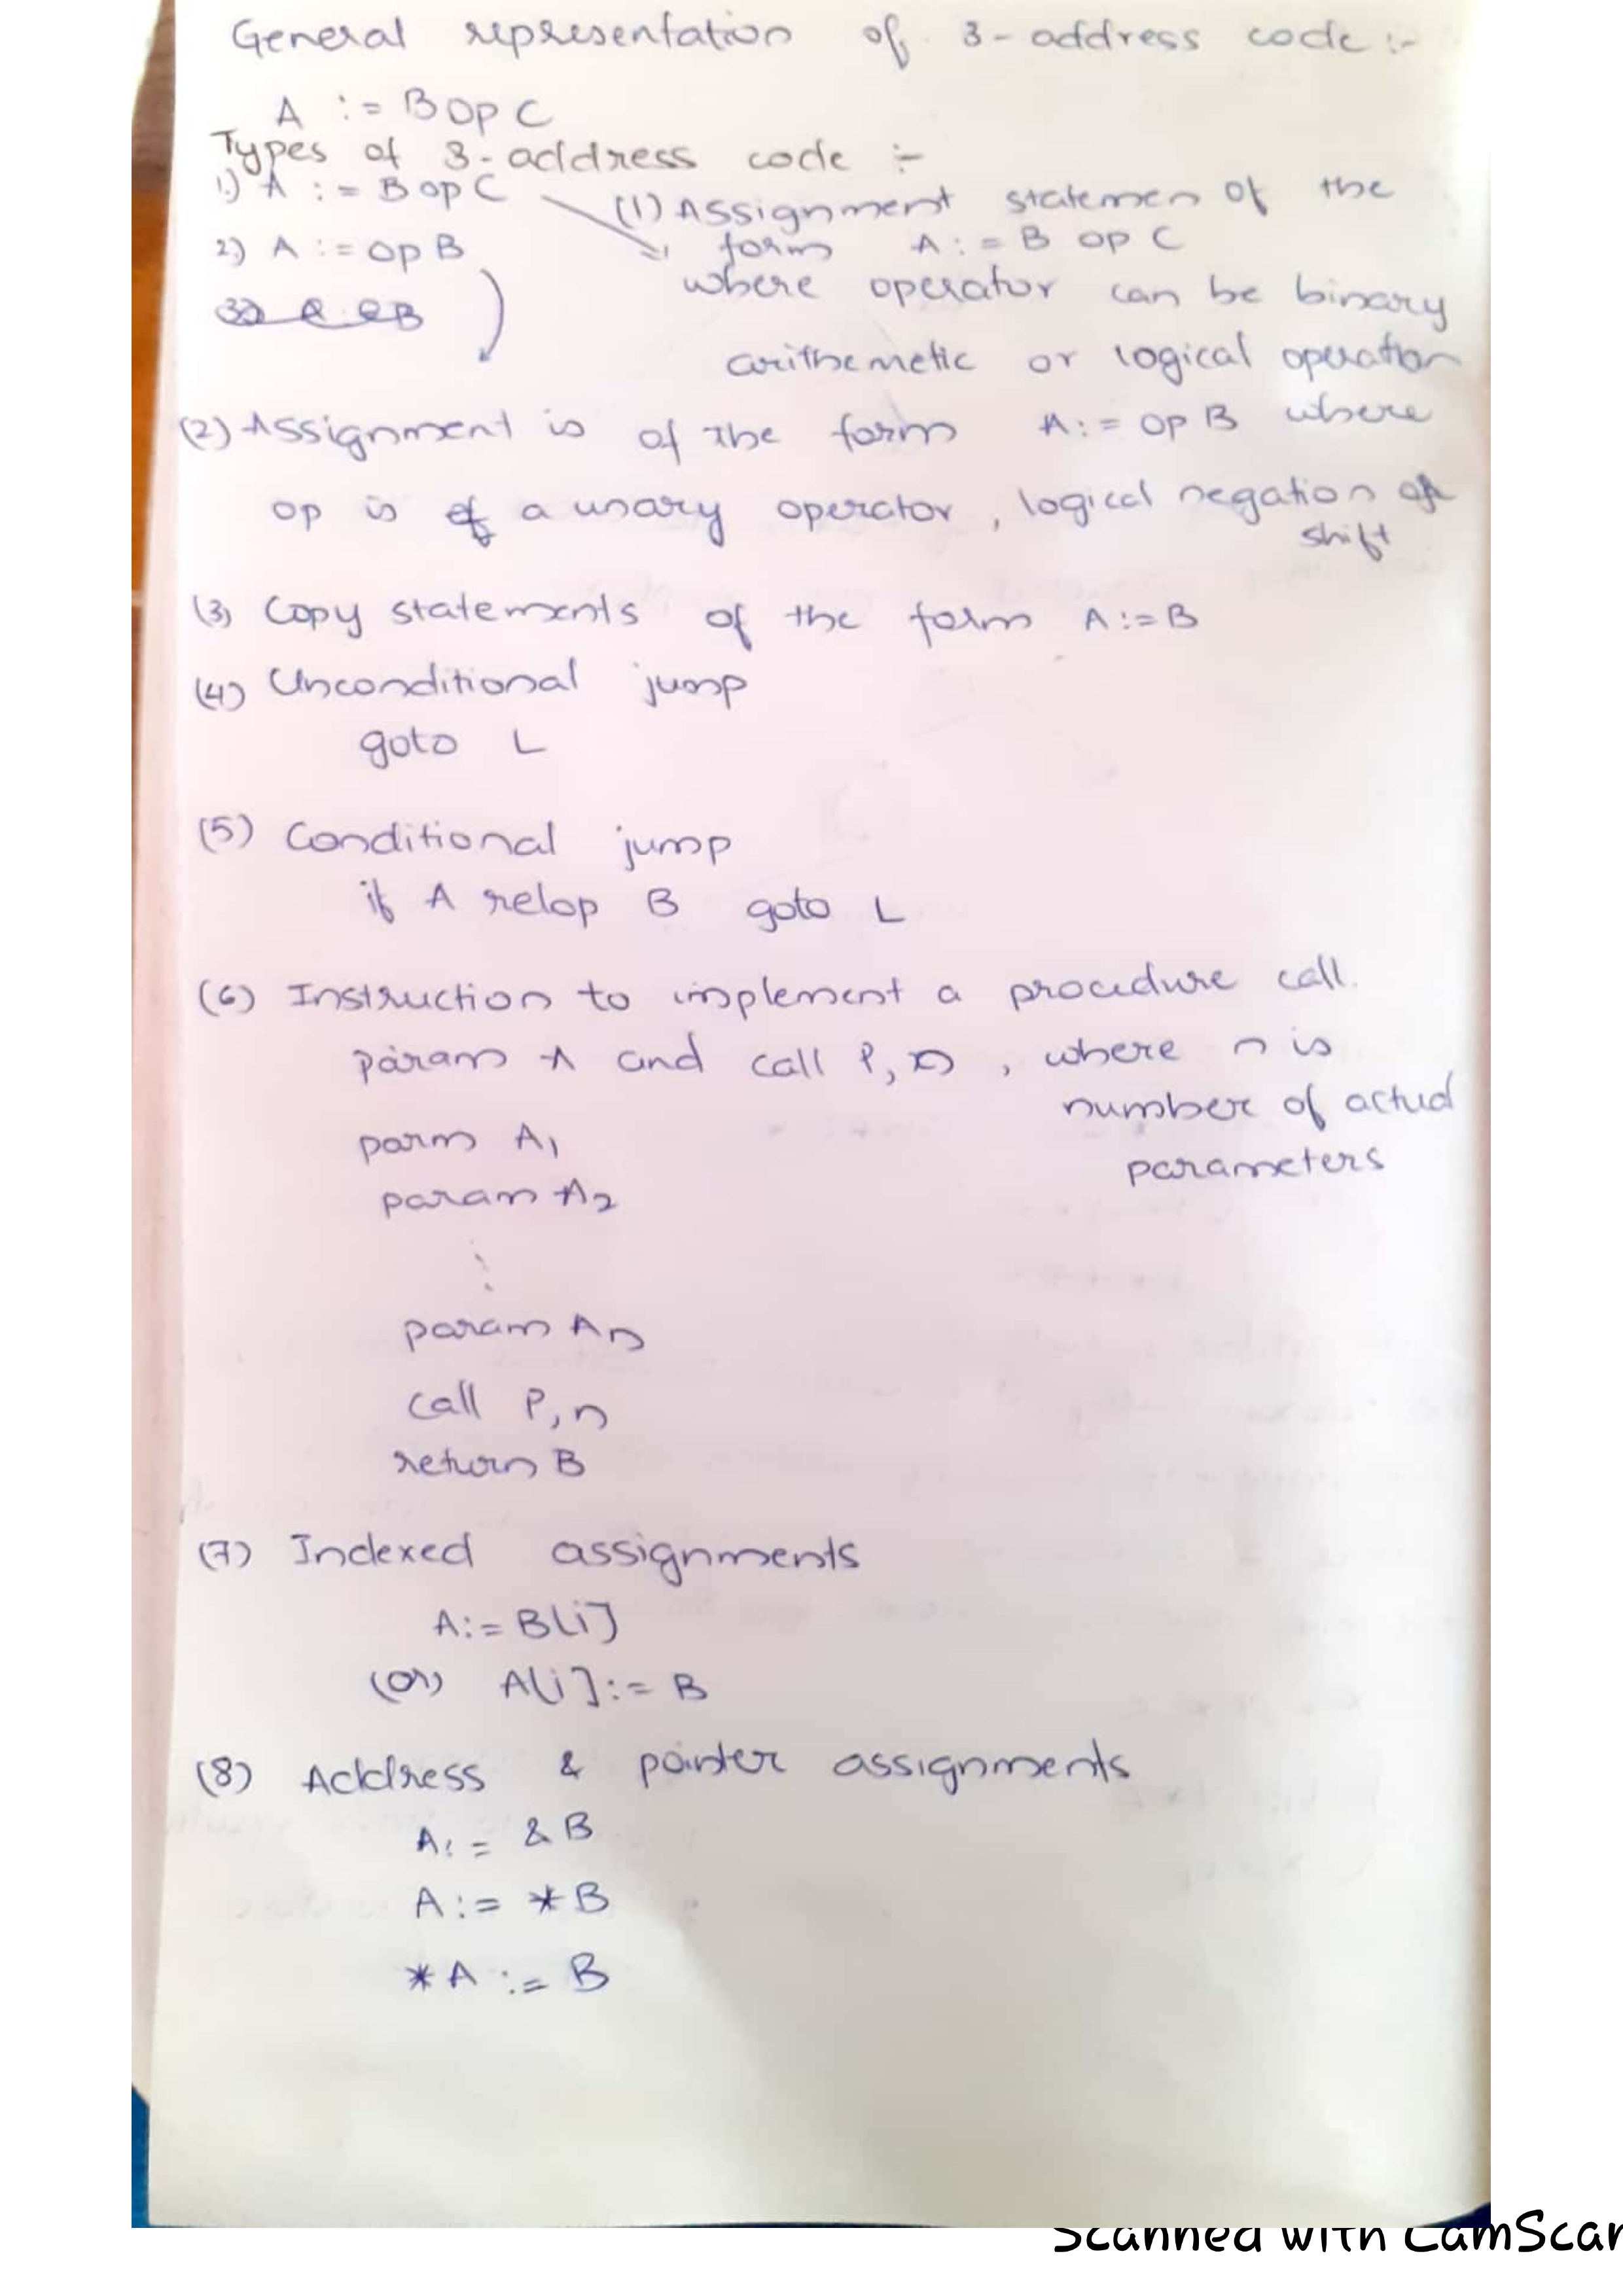 General representation of 3-address code :-
A := B op C
Types of 3-address code :-
1.) A := B op C
(1) Assignment statemen of the
2.) A := op B
form A := B op C
where operator can be binary
arithemetic or logical operation
(2) Assignment is of the form A := op B where
op is a unary operator, logical negation or
shift
(3) Copy statements of the form A := B
(4) Unconditional jump
goto L
(5) Conditional jump
if A relop B goto L
(6) Instruction to implement a procedure call.
param A and call P, n , where n is
number of actual
parm A1
parameters
param A2
⋮
param An
call P, n
return B
(7) Indexed assignments
A := B[i]
(or) A[i] := B
(8) Address & pointer assignments
A := & B
A := * B
* A := B
Scanned with CamScan